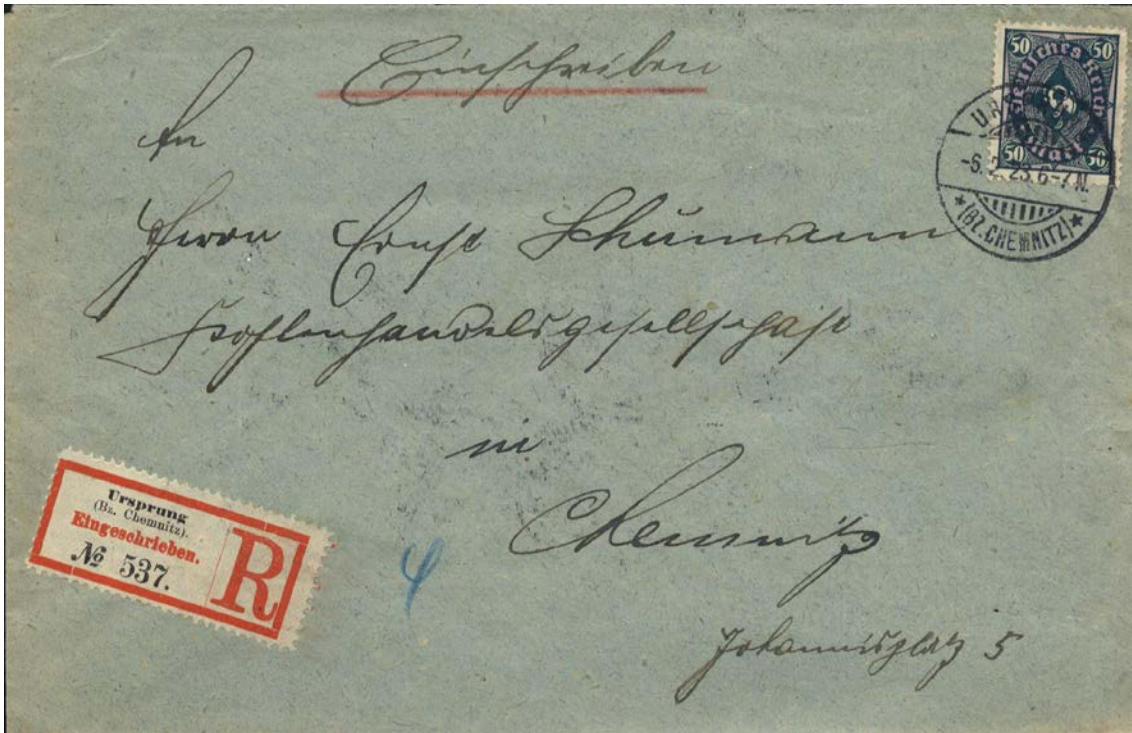 Einschreiben
An
Herrn Ernst Schumann
Kohlenhandelsgesellschaft
in
Chemnitz
Johannisplatz 5
50 50
Deutsches Reich
Mark
50 50
-6. 2. 23. 6-7 N.
*(BZ. CHEMNITZ)*
Ursprung
(Bz. Chemnitz).
Eingeschrieben.
№ 537.
R
4